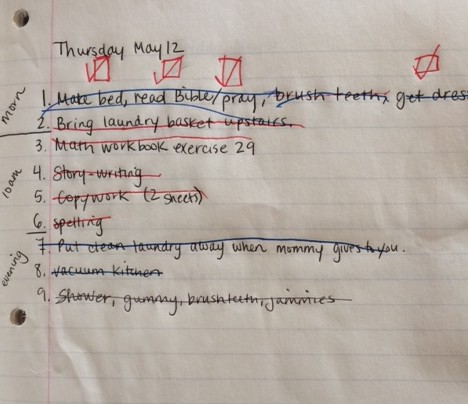 Thursday May 12
morn
1. Make bed, read Bible/pray, brush teeth, get dres
2. Bring laundry basket upstairs.
3. Math workbook exercise 29
10am
4. Story-writing
5. Copywork (2 sheets)
6. spelling
evening
7. Put clean laundry away when mommy gives to you.
8. vacuum kitchen
9. Shower, gummy, brush teeth, jammies